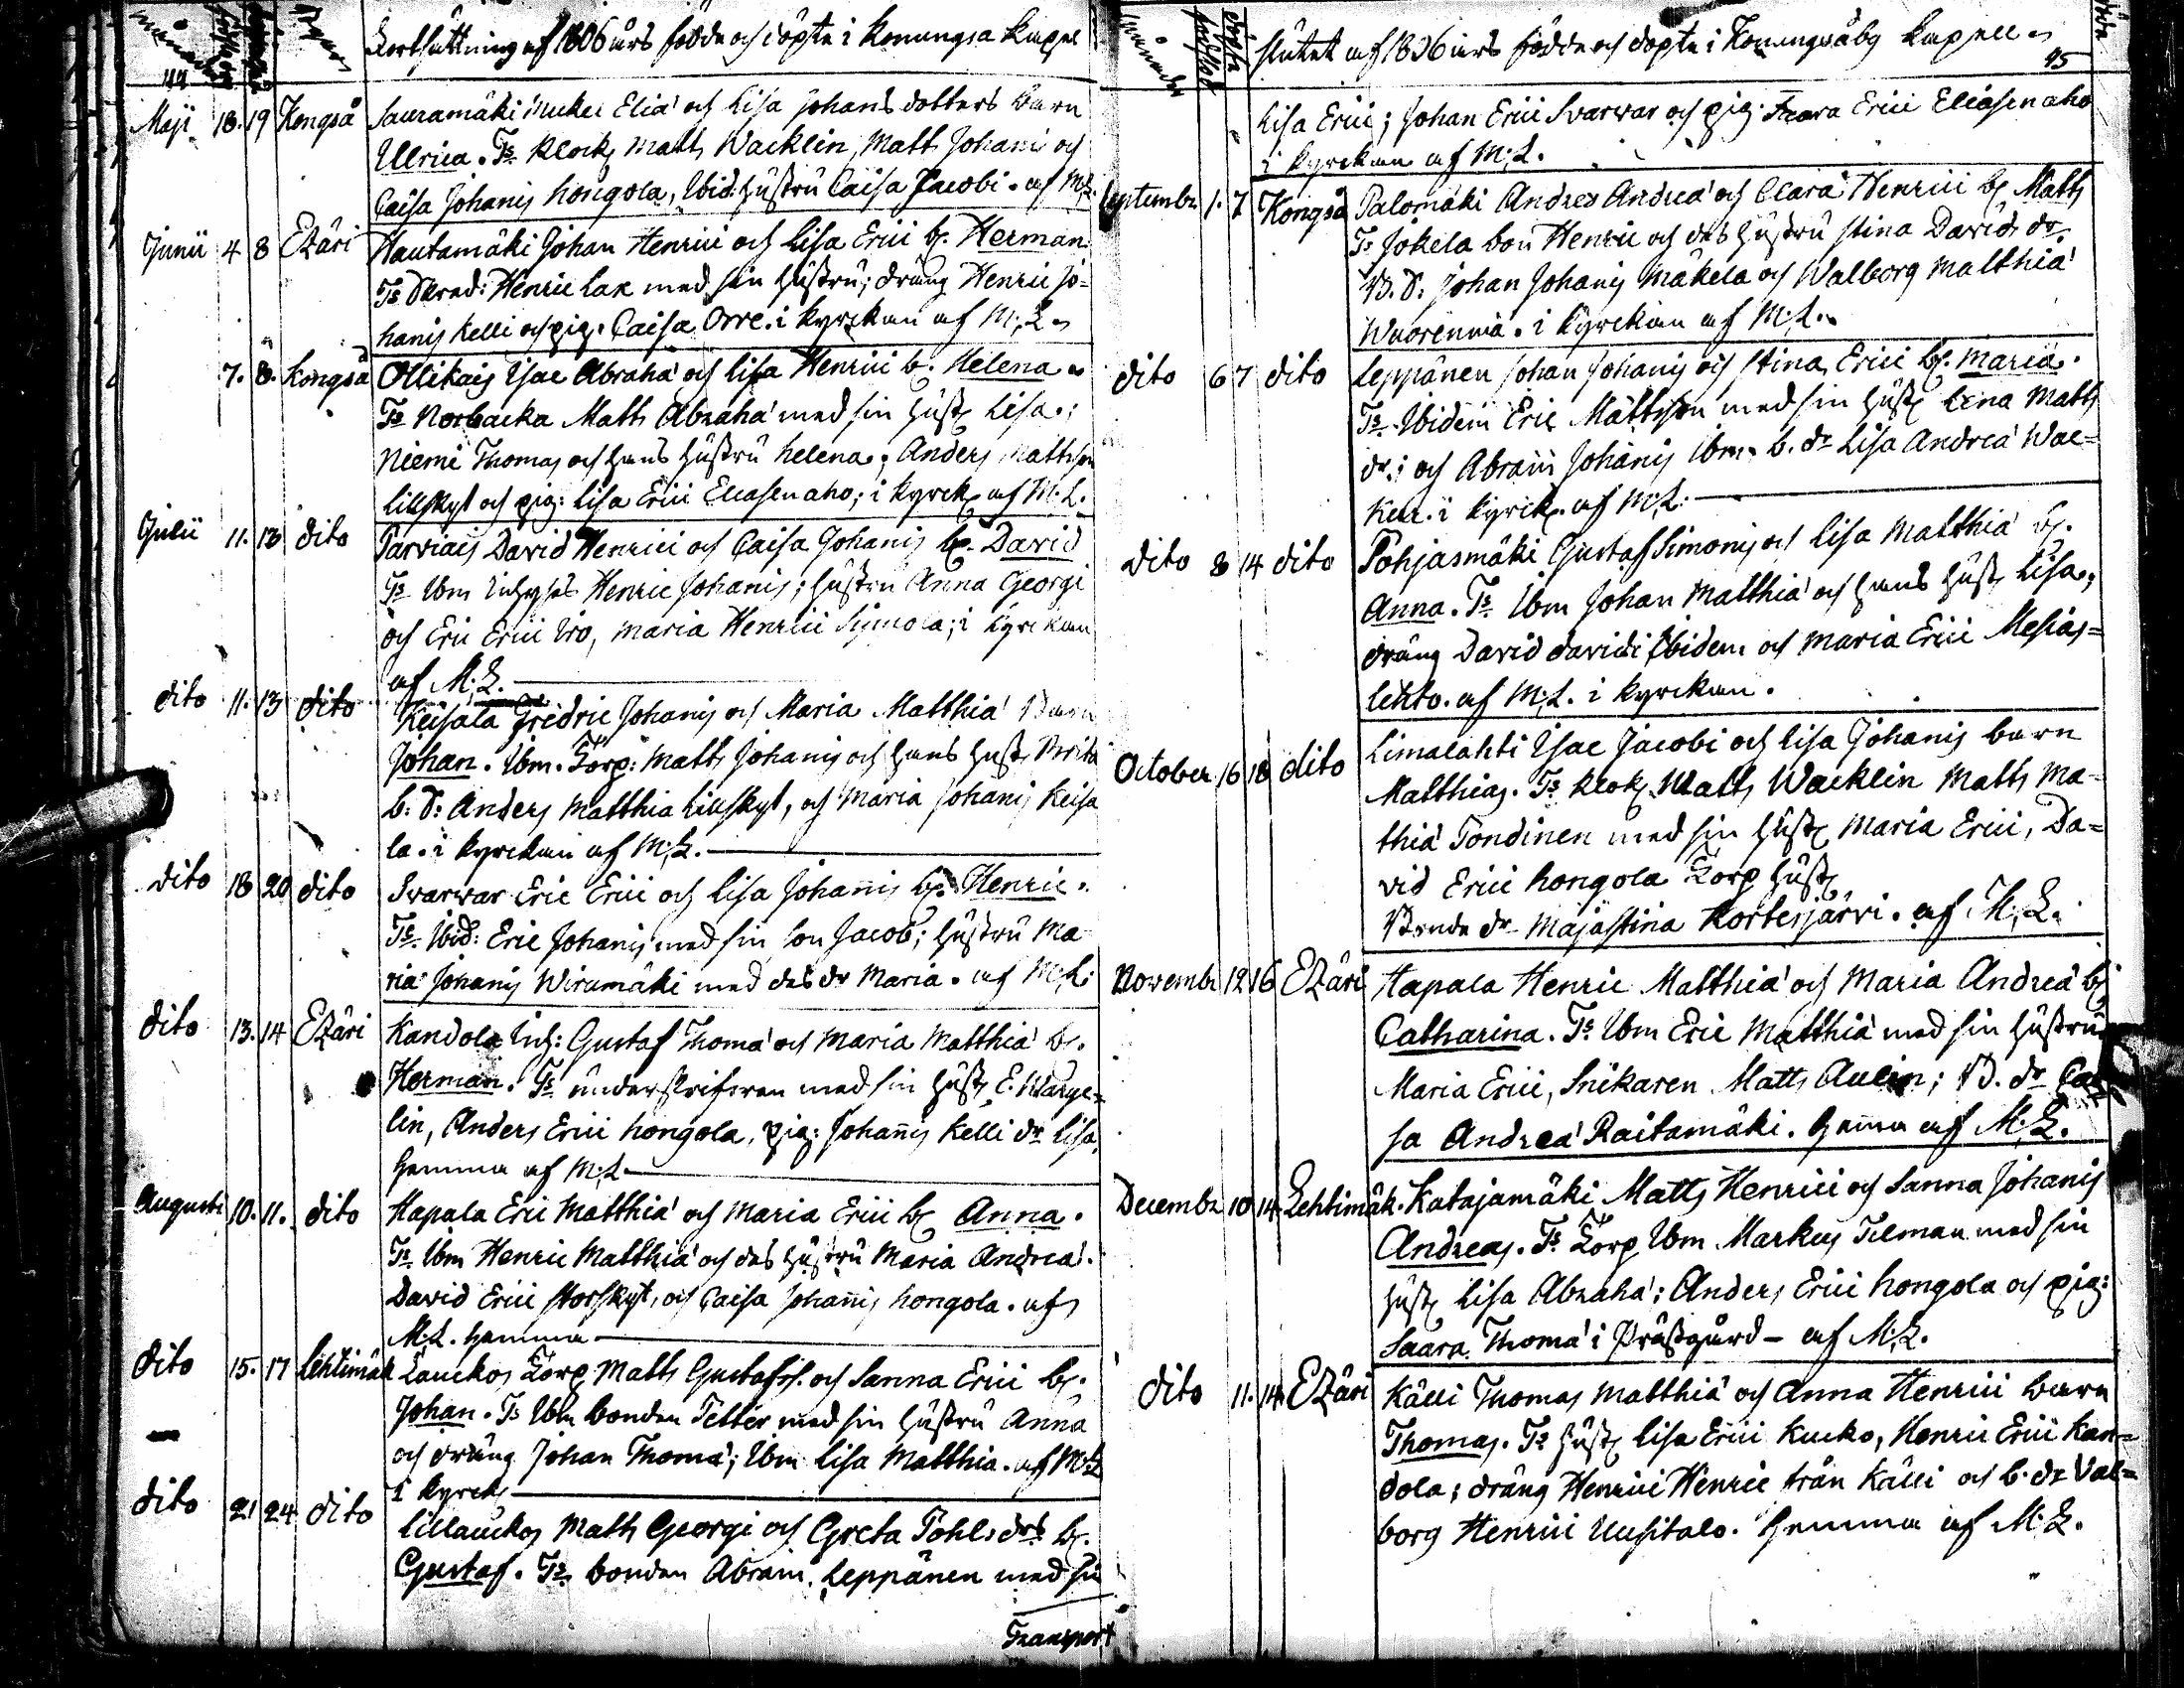 44
Månader
Byar
Fortsättning af 1806 års födde och döpte i Konungså Kapel
Maji 18. 19 Kongså Sauramäki Mickel Eliæ och Lisa Johans dotters barn
Ulrica. Ts. Klock Matts Wacklin, Matts Johanis och
Caisa Johanis hongola, Ibid: hustru Caisa Jacobi. af M:L.
Junii 4 8 Etzäri Hautamäki Johan Henrici och Lisa Erici b. Herman
Ts Skred: Henric Lax med sin hustru; dräng Henric Jo=
hanis Kelli och pig. Caisa Orre. i kyrckan af M:L.
7. 8. Kongså Ollikais Isac Abrahā och Lisa Henrici b. Helena
Ts Norbacka Matts Abrahā med sin hust Lisa;
Niemi Thomas och hans hustru helena; Anders Mattsson
Lillskyt och pig: Lisa Erici Eliasenaho; i kyrck af M:L.
Julii 11. 13 dito Parviais David Henrici och Caisa Johanis b. David
Ts Ibm Inhyses Henric Johanis; hustru Anna Georgi
och Eric Erici Iro, Maria Henrici Sijmola; i kyrckan
af M:L.
dito 11. 13 dito Keisala Fredric Johanis och Maria Matthiæ Barn
Johan. Ibm. Torp: Matts Johanis och hans hust Brita
b: d: Anders Matthiæ Lillskyt, och Maria Johanis Keisa
la. i kyrckan af M:L.
dito 18 20 dito Svarvar Eric Erici och Lisa Johanis b. Henric.
Ts. Ibid: Eric Johanis med sin son Jacob; hustru Ma
ria Johanis Wiramäki med des dr Maria. af M:L:
dito 13. 14 Etzäri Kandola Inh: Gustaf Thomæ och Maria Matthiæ b.
Herman. Ts underskrifvaren med sin hust E. Warge=
lin, Anders Erici hongola, pig: Johanis Kelli dr Lisa,
hemma af M:L
Augusti 10. 11. dito Hapala Eric Matthiæ och Maria Erici b Anna.
Ts. Ibm Henric Matthiæ och des hustru Maria Andreæ.
David Erici storskyt, och Caisa Johanis hongola. af
M:L. hemma
dito 15. 17 Lehtimäk Lauckos Torp Matts Gustafss. och Sanna Erici b.
Johan. Ts Ibm bonden Petter med sin hustru Anna
och dräng Johan Thomæ; Ibm Lisa Matthiæ. af M:L
i kyrck
dito 21 24 dito Lillauckos Matts Georgi och Greta Pohls drs b.
Gustaf. Ts. bonden Abram Leppänen med sin
Transport
Månader
födde
döpte
slutet af 1806 års födde och döpte i Konungsåby kapell
45
Lisa Erici; Johan Erici Svarvar och pig Saara Erici Eliasenaho
i kyrckan af M:L.
Septembr 1. 7 Kongså Palomäki Andres Andreæ och Clara Henrici b Matts
Ts Jokela bon Henric och des hustru Stina Davids dr.
B. d: Johan Johanis Mäkela och Walborg Matthiæ
Wuorenma. i kyrckan af M:L.
dito 6 7 dito Leppänen Johan Johanis och Stina Erici b: Maria.
Ts. Ibidem Eric Mattsson med sin hust Lena Matts
dr; och Abram Johanis Ibm. b. dr Lisa Andreæ Wac=
ker. i kyrck. af M:L:
dito 8 14 dito Pohjasmäki Gustaf Simonis och Lisa Matthiæ b.
Anna. Ts. Ibm Johan Matthiæ och hans hust Lisa;
dräng David Davidi Ibidem och Maria Erici Mesias=
lehto. af M:L. i kyrckan.
October 16 18 dito Limalahti Isac Jacobi och Lisa Johanis barn
Matthias. Ts Klok Matts Wacklin Matts Ma=
thiæ Tondinen med sin hust Maria Erici, Da=
vid Erici hongola Torp hust
Bonde dr Majastina Kortesjärvi. af M:L.
Novembr 12 16 Etzäri Hapala Henric Matthiæ och Maria Andreæ b
Catharina. Ts. Ibm Eric Matthiæ med sin hustru
Maria Erici, Snikaren Matts Aulin; B. dr Cai
sa Andreæ Raitamäki. hema af M:L.
Decembr 10 14 Lehtimäk. Katajamäki Matts Henrici och Sanna Johanis
Andreas. Ts. Torp Ibm Markus Tilman med sin
hust Lisa Abrahā; Anders Erici hongola och pig:
Saara Thomæ i Prästgård – af M:L.
dito 11. 14 Etzäri Källi Thomas Matthiæ och Anna Henrici barn
Thomas. Ts hust Lisa Erici Kucko, Henric Erici Kan=
dola; dräng Henrici Henric från Källi och b. dr Val=
borg Henrici Uusitalo. hemma af M:L.